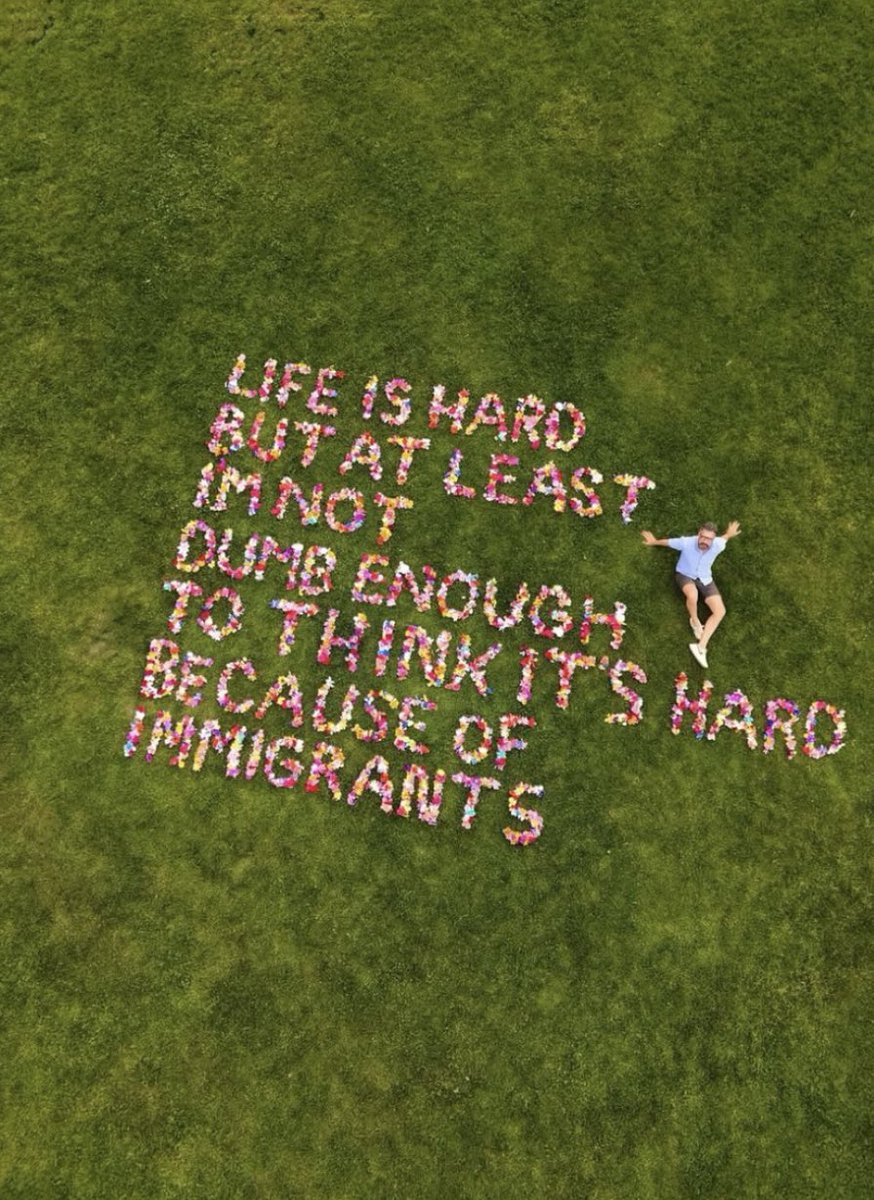 LIFE IS HARD
BUT AT LEAST
IM NOT
DUMB ENOUGH
TO THINK IT'S HARD
BECAUSE OF
IMMIGRANTS